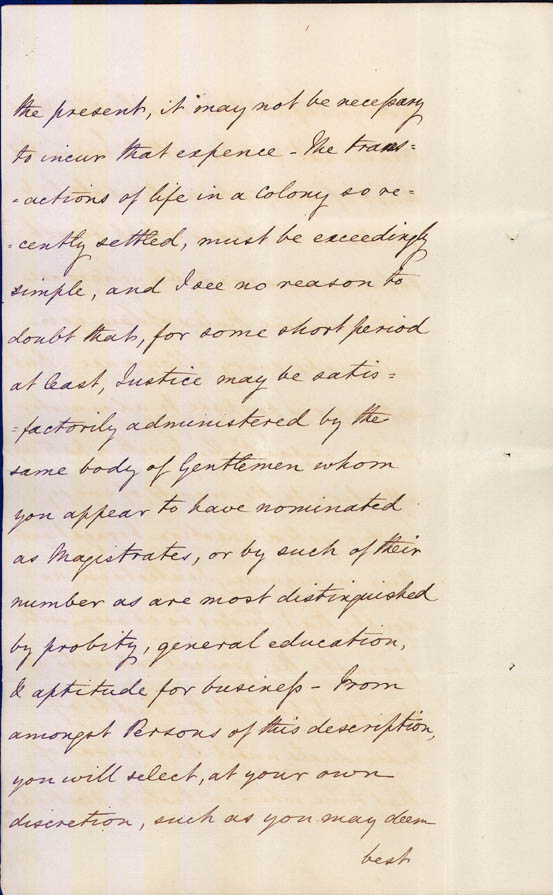 the present, it may not be necessary
to incur that expence - The trans=
=actions of life in a Colony so re=
=cently settled, must be exceedingly
simple, and I see no reason to
doubt that, for some short period
at least, Justice may be satis=
=factorily administered by the
same body of Gentlemen whom
you appear to have nominated
as Magistrates, or by such of their
number as are most distinguished
by probity, general education,
& aptitude for business - From
amongst Persons of this description,
you will select, at your own
discretion, such as you may deem
best